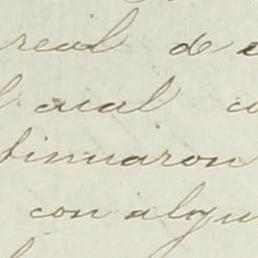 real de
cual
tinuaron
con algu